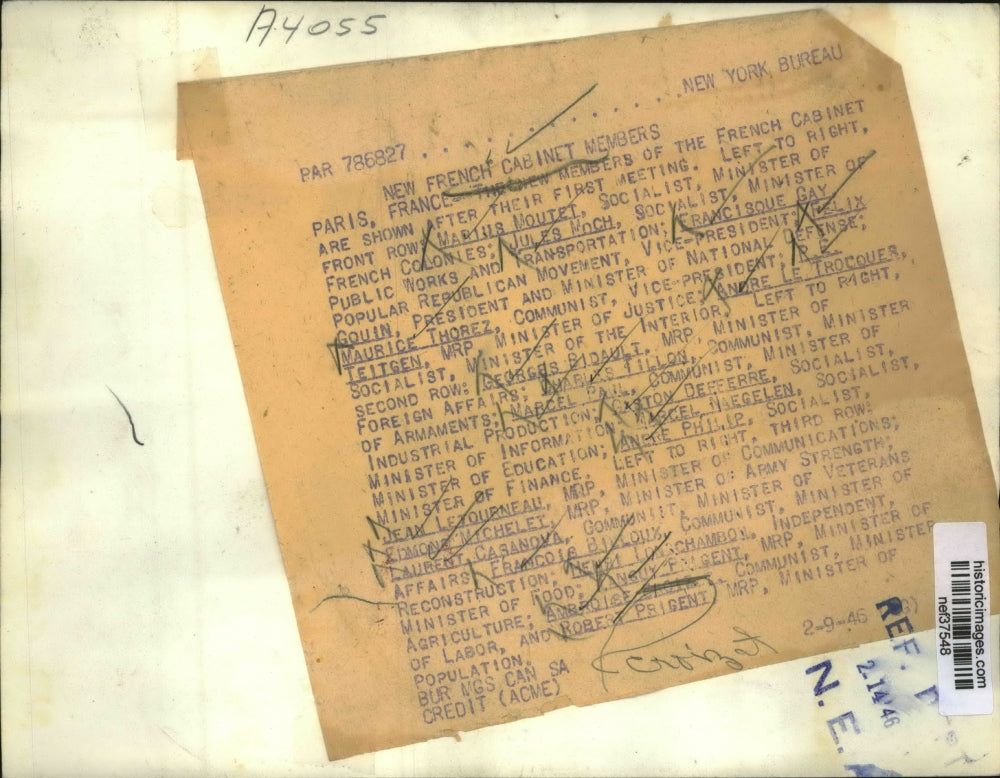 A4055
NEW YORK BUREAU
PAR 786827 . . . . . . . . . . . .
NEW FRENCH CABINET MEMBERS
PARIS, FRANCE- THE NEW MEMBERS OF THE FRENCH CABINET
ARE SHOWN AFTER THEIR FIRST MEETING. LEFT TO RIGHT,
FRONT ROW: MARIUS MOUTET, SOCIALIST, MINISTER OF
FRENCH COLONIES; JULES MOCH, SOCIALIST, MINISTER OF
PUBLIC WORKS AND TRANSPORTATION; FRANCISQUE GAY
POPULAR REPUBLICAN MOVEMENT, VICE-PRESIDENT; FELIX
GOUIN, PRESIDENT AND MINISTER OF NATIONAL DEFENSE;
MAURICE THOREZ, COMMUNIST, VICE-PRESIDENT; P.H.
TEITGEN, MRP, MINISTER OF JUSTICE; ANDRE LE TROCQUER,
SOCIALIST, MINISTER OF THE INTERIOR. LEFT TO RIGHT,
SECOND ROW: GEORGES BIDAULT, MRP, MINISTER OF
FOREIGN AFFAIRS; CHARLES TILLON, COMMUNIST, MINISTER
OF ARMAMENTS; MARCEL PAUL, COMMUNIST, MINISTER OF
INDUSTRIAL PRODUCTION; GASTON DEFFERRE, SOCIALIST,
MINISTER OF INFORMATION; MARCEL NAEGELEN, SOCIALIST,
MINISTER OF EDUCATION; ANDRE PHILIP, SOCIALIST,
MINISTER OF FINANCE. LEFT TO RIGHT, THIRD ROW:
JEAN LETOURNEAU, MRP, MINISTER OF COMMUNICATIONS;
EDMOND MICHELET, MRP, MINISTER OF ARMY STRENGTH;
LAURENT CASANOVA, COMMUNIIT, MINISTER OF VETERANS
AFFAIRS; FRANCOIS BILLOUX, COMMUNIST, MINISTER OF
RECONSTRUCTION; HENRI LONGCHAMBON, INDEPENDENT,
MINISTER OF FOOD; TANGUY PRIGENT, MRP, MINISTER OF
AGRICULTURE; AMBROISE COMMUNIST, MINISTER
OF LABOR, AND ROBERT PRIGENT, MRP, MINISTER OF
POPULATION.
BUR MGS CAN SA
CREDIT (ACME) 2-9-46
Croizat
REF.
2.14'46
N. E. A
historicimages.com
nef37548